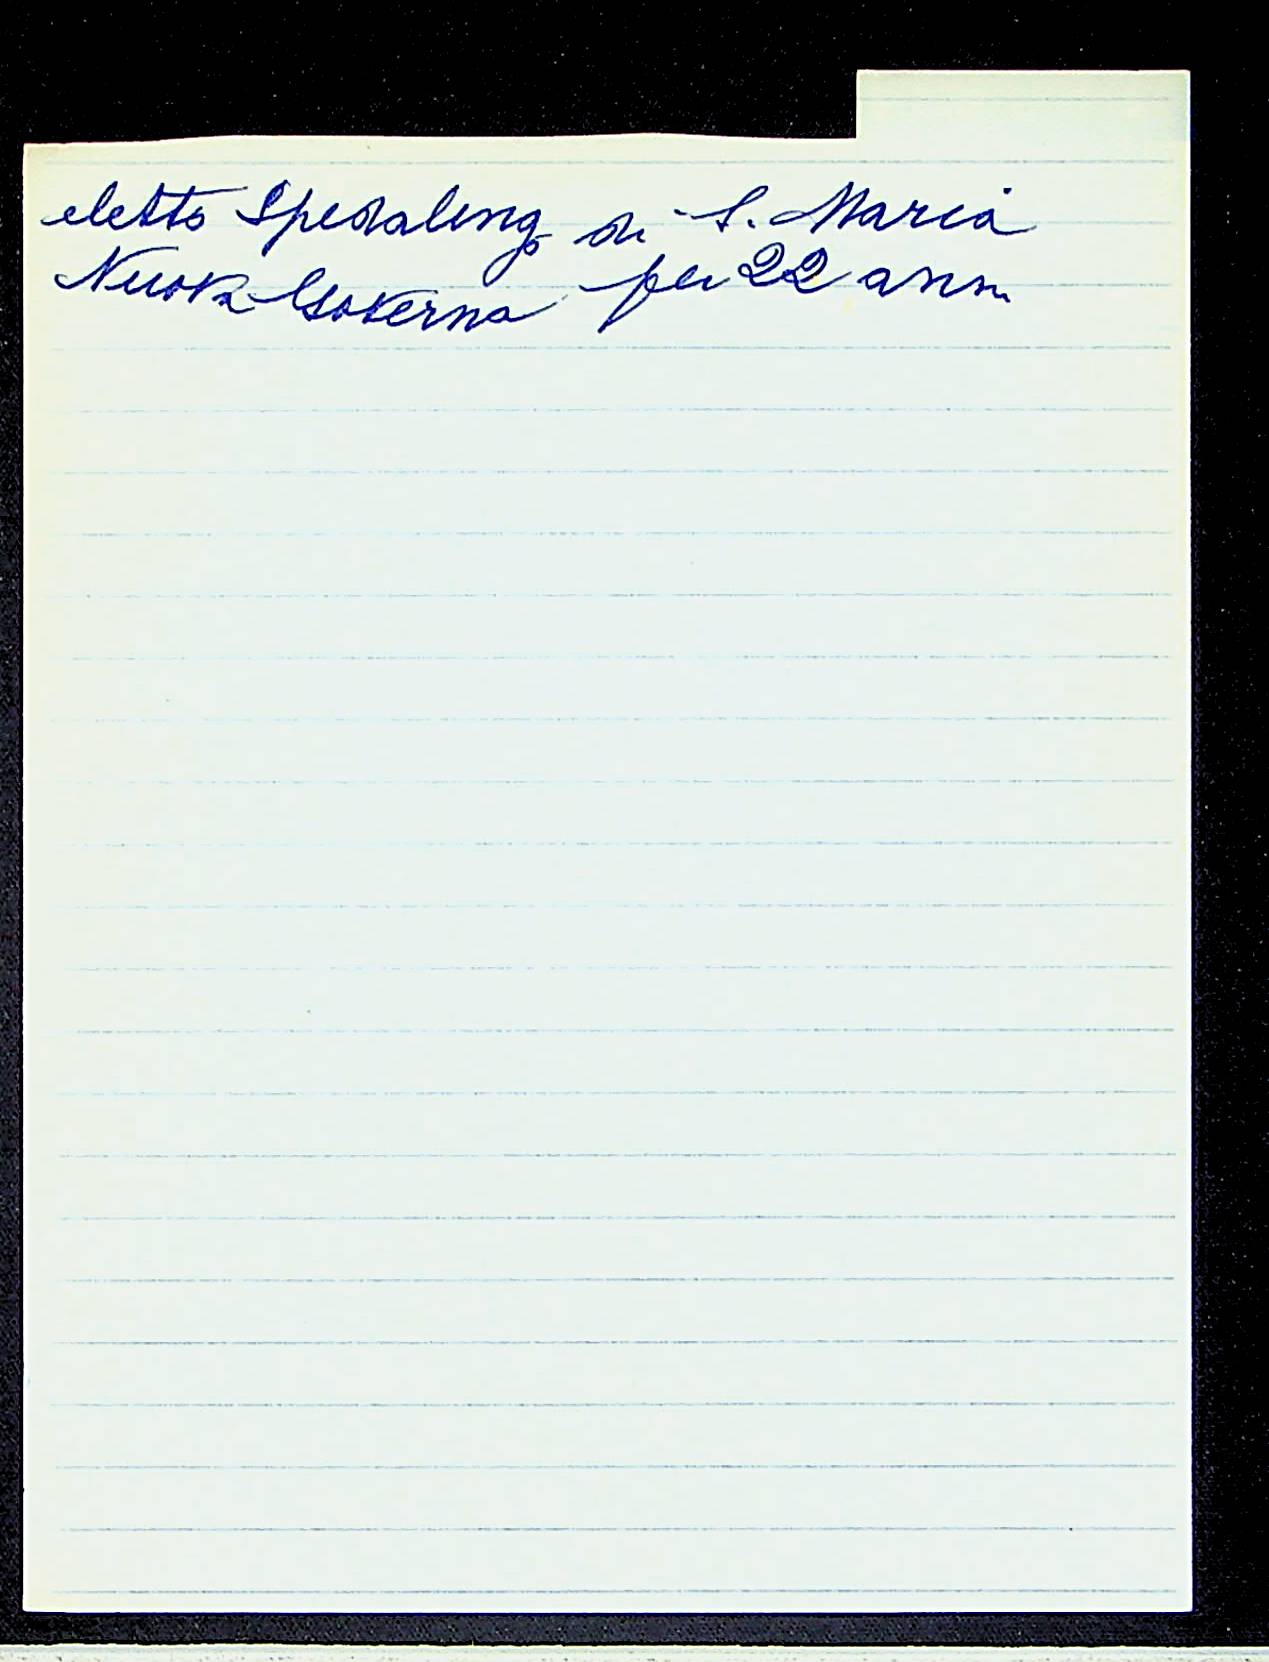 eletto Spedalingo di S. Maria
Nuova Governa per 22 anni